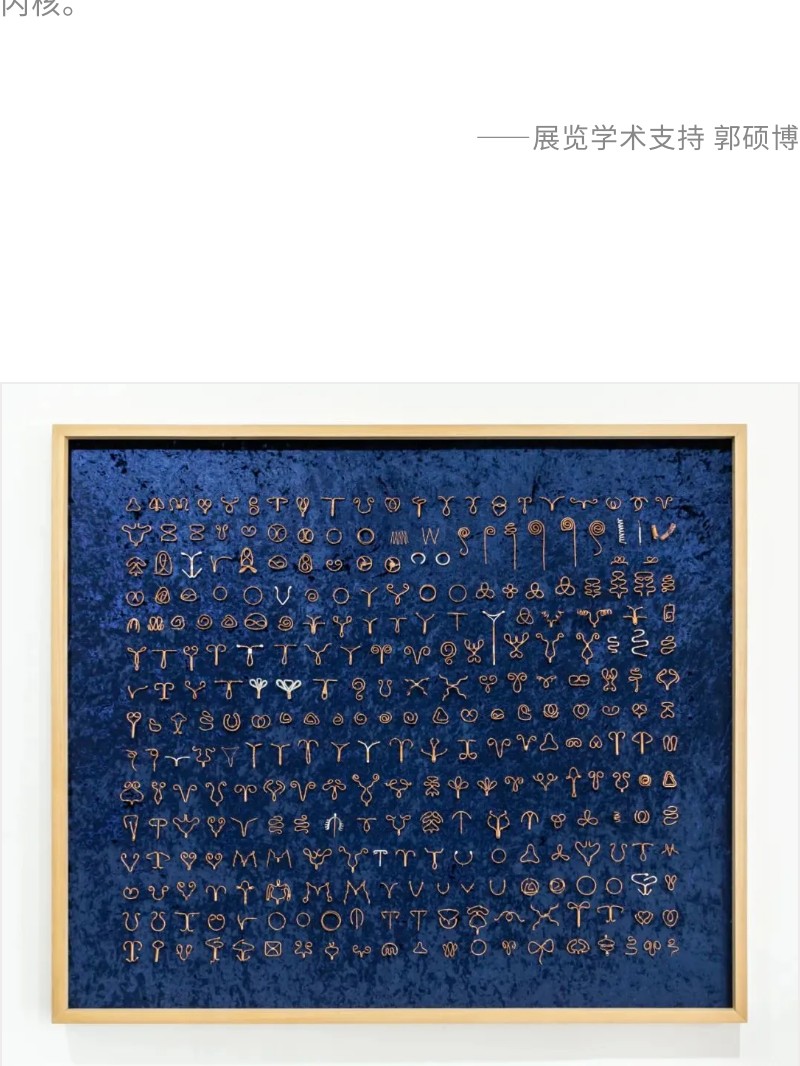 内核。
——展览学术支持 郭硕博